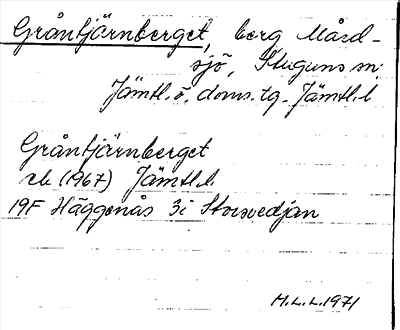 Gråntjärnberget, berg Mård-
sjö, Stuguns sn.
Jämtl. ö. doms. tg. Jämtl. l
Gråntjärnberget
rb (1967) Jämtl. l.
19F Häggenås 3i Storvedjan
M.L.L. 1971